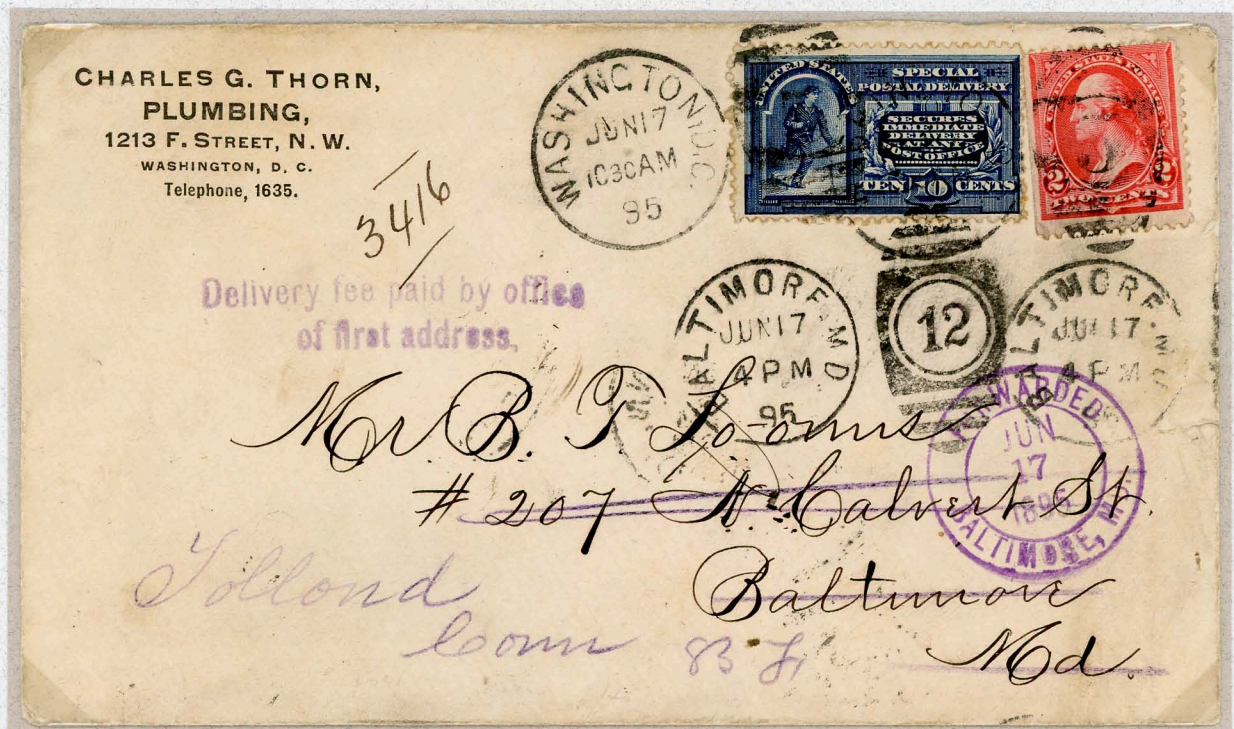 CHARLES G. THORN,
PLUMBING,
1213 F. STREET, N. W.
WASHINGTON, D. C.
Telephone, 1635.
3416
WASHINGTON, D.C.
JUN 17
1030AM
95
UNITED STATES
SPECIAL
POSTAL DELIVERY
SECURES
IMMEDIATE
DELIVERY
AT ANY
POST OFFICE
TEN 10 CENTS
UNITED STATES POSTAGE
2 2
TWO CENTS
Delivery fee paid by office
of first address.
BALTIMORE MD
JUN 17
4 PM
95
12
BALTIMORE. MD
JUN 17
4 PM
FORWARDED
JUN
17
1895
BALTIMORE, MD.
Mr B. T. Loomis
# 207 N. Calvert St.
Baltimore
Md.
Tolland
Conn